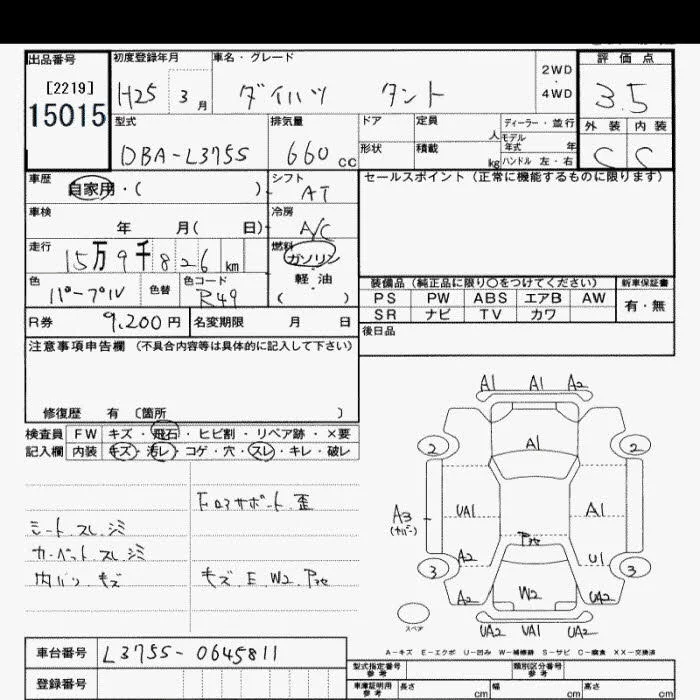 出品番号 初度登録年月 車名・グレード 評価点
[2219]
15015
H25 3月 ダイハツ タント 2WD・4WD 3.5
型式 排気量 ドア 定員 人 ディーラー・並行 外装 内装
DBA-L375S 660cc 形状 積載 kg モデル年式 年 ハンドル 左・右 C C
車歴 自家用・( ) シフト AT セールスポイント (正常に機能するものに限ります)
車検 年 月( 日) 冷房 A/C
走行 15万9千826km 燃料 ガソリン・軽油( )
色 パープル 色替 色コード R49
装備品 (純正品に限り○をつけてください) 新車保証書
PS PW ABS エアB AW 有・無
SR ナビ TV カワ
R券 9,200円 名変期限 月 日 後日品
注意事項申告欄 (不具合内容等は具体的に記入して下さい)
修復歴 有 〔箇所 〕
検査員 FW キズ・飛石・ヒビ割・リペア跡・×要
記入欄 内装 キズ・汚レ・コゲ・穴・スレ・キレ・破レ
A1 A1 A2
2 A1 2
UA1 A1
A3
A2 U1
3 3
A2 W2 UA2
スペア
UA2 UA1 UA2
シート スレ シミ
カーペット スレ シミ
内バリ キズ
コアサポート 歪
キズ E W2
A-キズ E-エクボ U-凹み W-補修跡 S-サビ C-腐食 XX-交換済
車台番号 L375S-0645811
登録番号
型式指定番号 参考 類別区分番号 参考
車庫証明用 参考 長さ cm 幅 cm 高さ cm